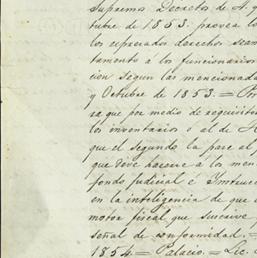 Supremos Decretos de A. y
tubre de 1853. provea lo
los espresados derechos sean
tamento a los funcionarios
cion segun las mencionada
y Octubre de 1853. =
ra que por medio de requisitori
los inventarios o al de
que el segundo la pase al
que deve hacerse a los men
fondo judicial é Instruc
en la inteligencia de que
motor fiscal que suscrive
señal de conformidad. =
1854. = Palacio. = Lic.